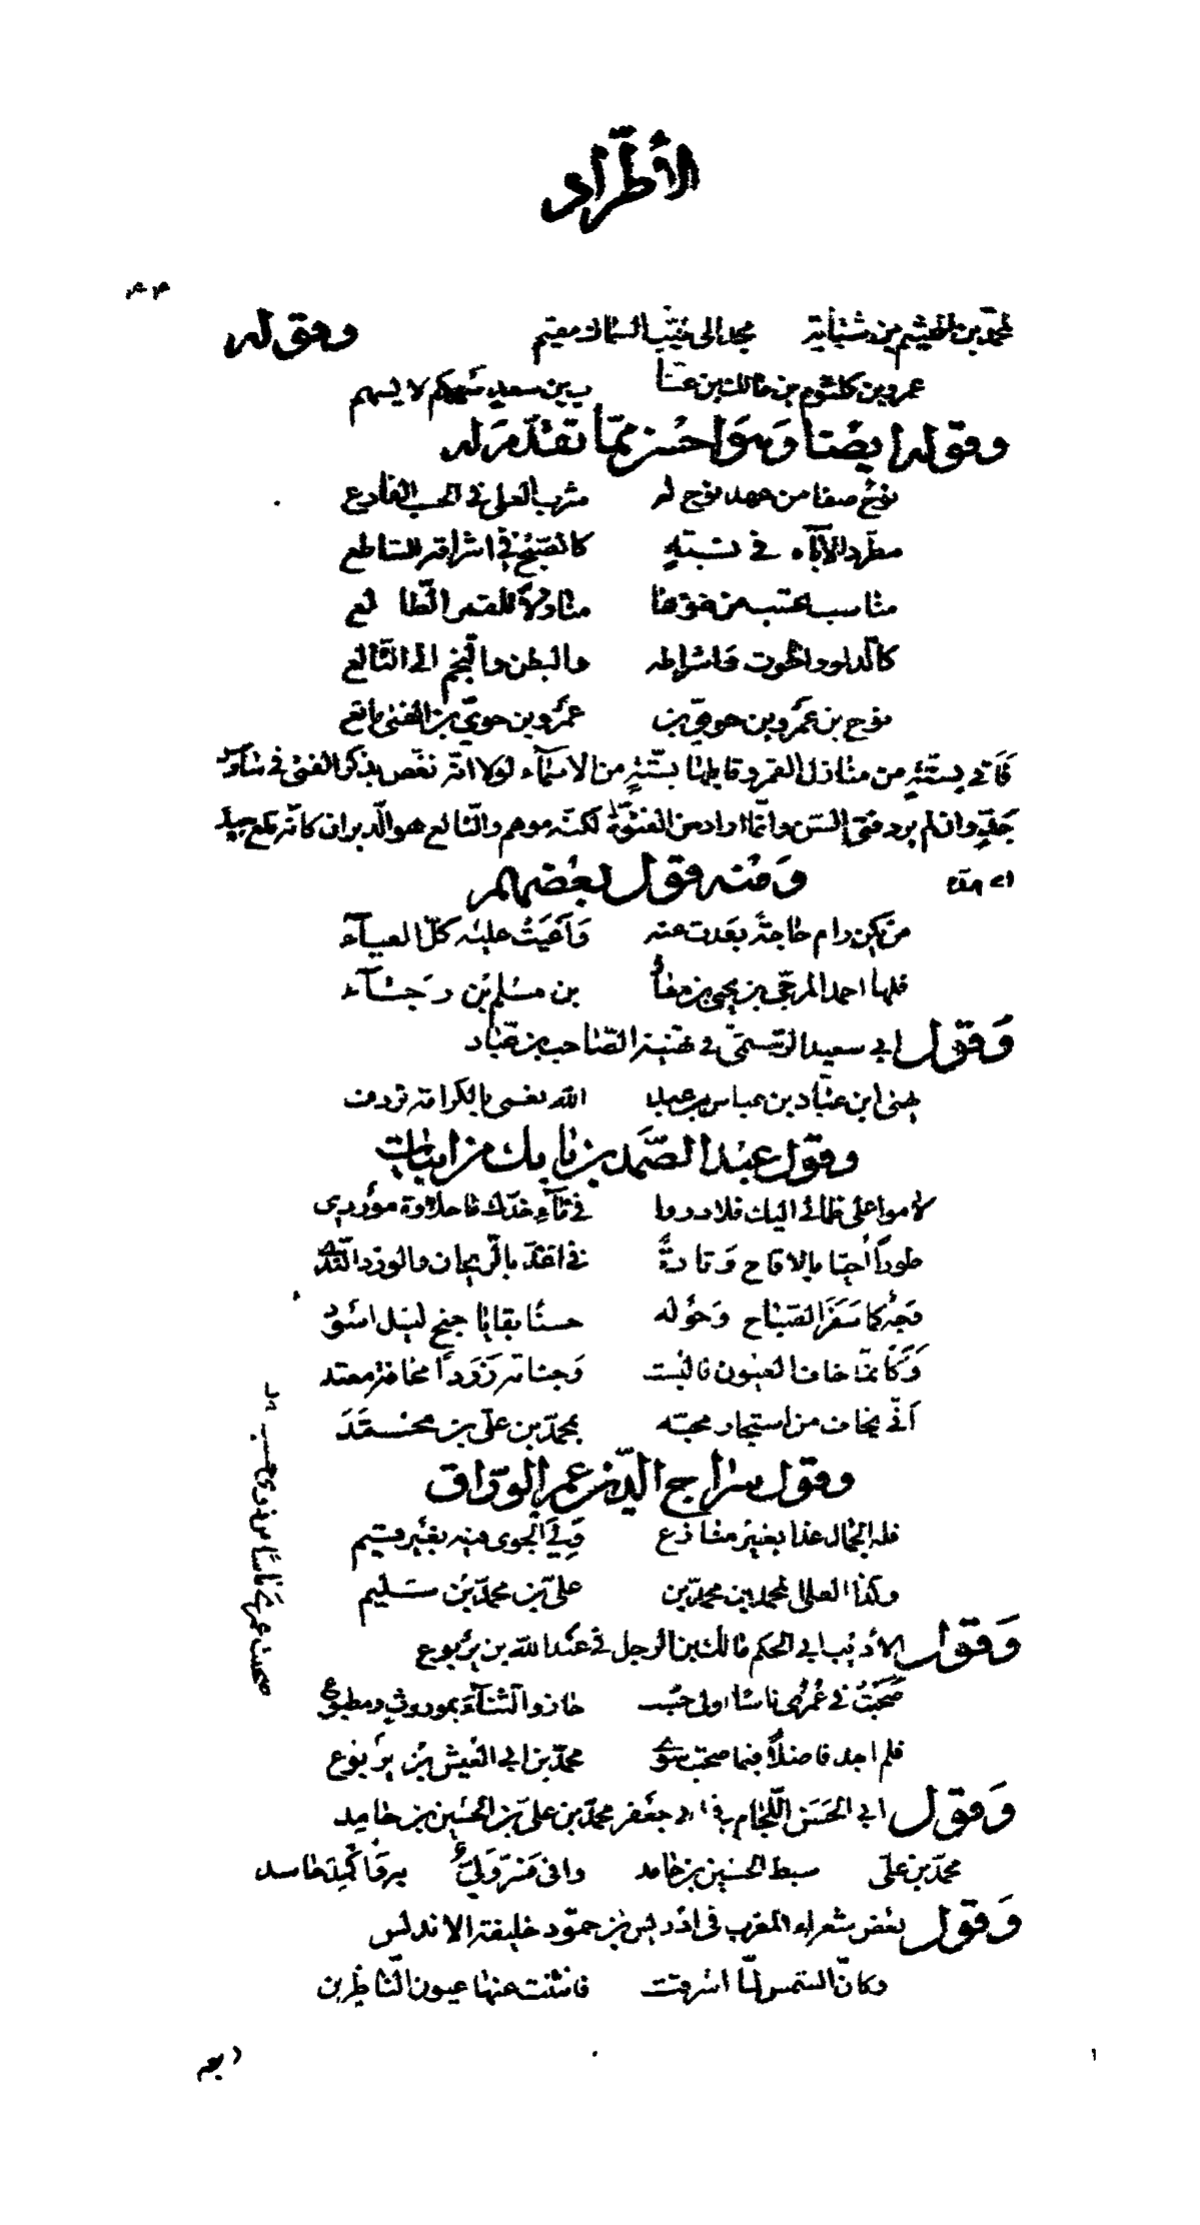 الأطّراد
لمحمّد بن الهيثم بن شبانة مجد الى جنب السماك مقيم وقوله
عمرو بن كلثوم بن مالك بن عتّا ب بن سعد سهمكم لا يسهم
وقوله ايضًا وهو احسن ممّا تقدّم من له
نوح صفا من عهد نوح له شرب العلى في الحسب الفارع
مطّرد الآباء في نسبته كالصّبح في اشراقه الساطع
مناسب تحسب من ضوءها منازلاً للقمر الطّا لع
كالّدلو والحوت واشراطه والبطن والنّجم الى التّالع
نوح بن عمرو بن حويّ بن عمرو بن حويّ بن الفتى ماتع
فاتى بستّة من منازل القمر وقابلها بستّة من الاسماء لولا انّه نغّص بذكر الفتى في
جدّه وان لم يرد فتى السنّ وانّما اراد من الفتوّة لكنّه موهم والتّالع هو الّدبران كانّه تلع جيده
اى مدّه ومنه قول بعضهم
من يكن رام حاجةً بعدت عنه وأعيت عليه كلّ العيآء
فلها احمد المرجّى بن يحيى بن معا ذ بن مسلم بن رجآء
وقول ابى سعيد الرّستمىّ في تهنية الصّاحب بن عبّاد
يهنى ابن عبّاد بن عباس بن عبد الله نعمى بالكرامة تردف
وقول عبد الصّمد بن بابك من ابيات
لاموا على ظمائى اليك فلا دروا في مآء خدّك ما حلاوة موردى
وجه كما سفر الصّباح وحوله حسنًا بقايا جنح ليل اسود
وكأنّما خاف العيون فالبست وجناته زردًا مخافة معتد
أنّى يخاف من استجار محبّه بمحمّد بن علىّ بن محمّد
وقول سراج الدّين عمر الورّاق
فله الجمال غدا بغير منازع ولى الجوى فيه بغير قسيم
وكذا العلى لمحمد بن محمّد بن علىّ بن محمّد بن سليم
وقول الأديب ابى الحكم مالك بن المرحل في عبد الله بن يربوع
صحبت في عُمرى ناسًا اولى حسب حازوا الثّنآء بموروث ومطبوع
فلم اجد فاضلاً فيما صحبت سوى محمّد بن ابى العيش بن يربوع
وقول ابى الحسن اللّحّام في ابى جعفر محمّد بن علىّ بن الحسين بن حامد
محمّد بن علىّ سبط الحسين بن حامد
وقول بعض شعراء المغرب في ادريس بن حمّود خليفة الاندلس
وكانّ الشمس لمّا اشرقت فانثنت عنها عيون النّاظرين
صحبت في عمرى ناسًا من ذوى حسب